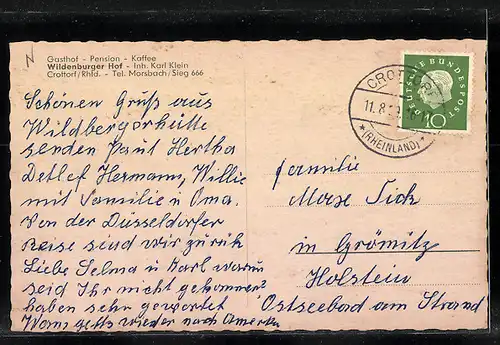 Gasthof - Pension - Kaffee
Wildenburger Hof - Inh. Karl Klein
Crottorf/Rhld. - Tel. Morsbach/Sieg 666
Schönen Gruß aus
Wildbergerhütte
senden Paul Hertha
Detlef Hermann, Willie
mit Familie u Oma.
Von der Düsseldorfer
Reise sind wir zurük
Liebe Selma u Karl warum
seid Ihr nicht gekommen
haben sehr gewartet
Wann gehts wieder nach Amerika
11.8
(RHEINLAND)
DEUTSCHE BUNDESPOST
10
Familie
Max
in Grömitz
Holstein
Ostseebad am Strand